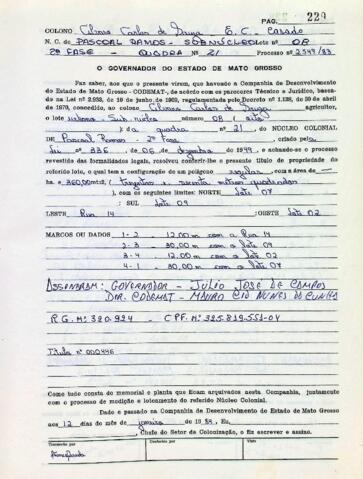 PAG. 229
COLONO Carlos de Souza E. C. Casado
N. C. de PASCOAL RAMOS - SOBNÚCLEO Lote nº 08
2ª FASE - QUADRA Nº 21 Processo nº 2549/83
O GOVERNADOR DO ESTADO DE MATO GROSSO
Faz saber, aos que a presente virem, que havendo a Companhia de Desenvolvimento
do Estado de Mato Grosso - CODEMAT-, de acôrdo com os pareceres Técnico e Jurídico, basea-
do na Lei nº 2.938, de 19 de junho de 1969, regulamentada pelo Decreto nº 1.138, de 29 de abril
de 1970, concedido, ao colono Carlos de Souza agricultor,
o lote número 08 ( oito
) da quadra nº 21. do NÚCLEO COLONIAL
de Pascoal Ramos - 2ª Fase
Lei nº 336, de 06 de dezembro de 1949, e achando-se o processo
revestido das formalidades legais, resolveu conferir-lhe o presente título de propriedade do
referido lote, o qual tem a configuração de um polígono regular, com a área de
ha e 360,00mts2, ( trezentos e sessenta metros quadrados
), com os seguintes limites: NORTE lote 07
: SUL lote 09
LESTE Rua 14 : OESTE lote 02
MARCOS OU DADOS 1-2 12,00m com a Rua 14
2-3 30,00m com lote 09
3-4 12,00m com lote 02
4-1 30,00m com lote 07
ASSINARAM: GOVERNADOR - JÚLIO JOSÉ DE CAMPOS
DIR. CODEMAT - MAURO CID NUNES DA CUNHA
RG. Nº 320.924 - CPF. Nº 325.819.551-04
Título nº 000446
Como tudo consta do memorial e planta que ficam arquivados nesta Companhia, juntamente
com o processo de medição e loteamento do referido Núcleo Colonial.
Dado e passado na Companhia de Desenvolvimento do Estado de Mato Grosso
aos 12 dias do mês de janeiro de 1984, Eu,
, Chefe do Setor de Colonização, o fiz escrever.
Transcrito por Conferido por Visto